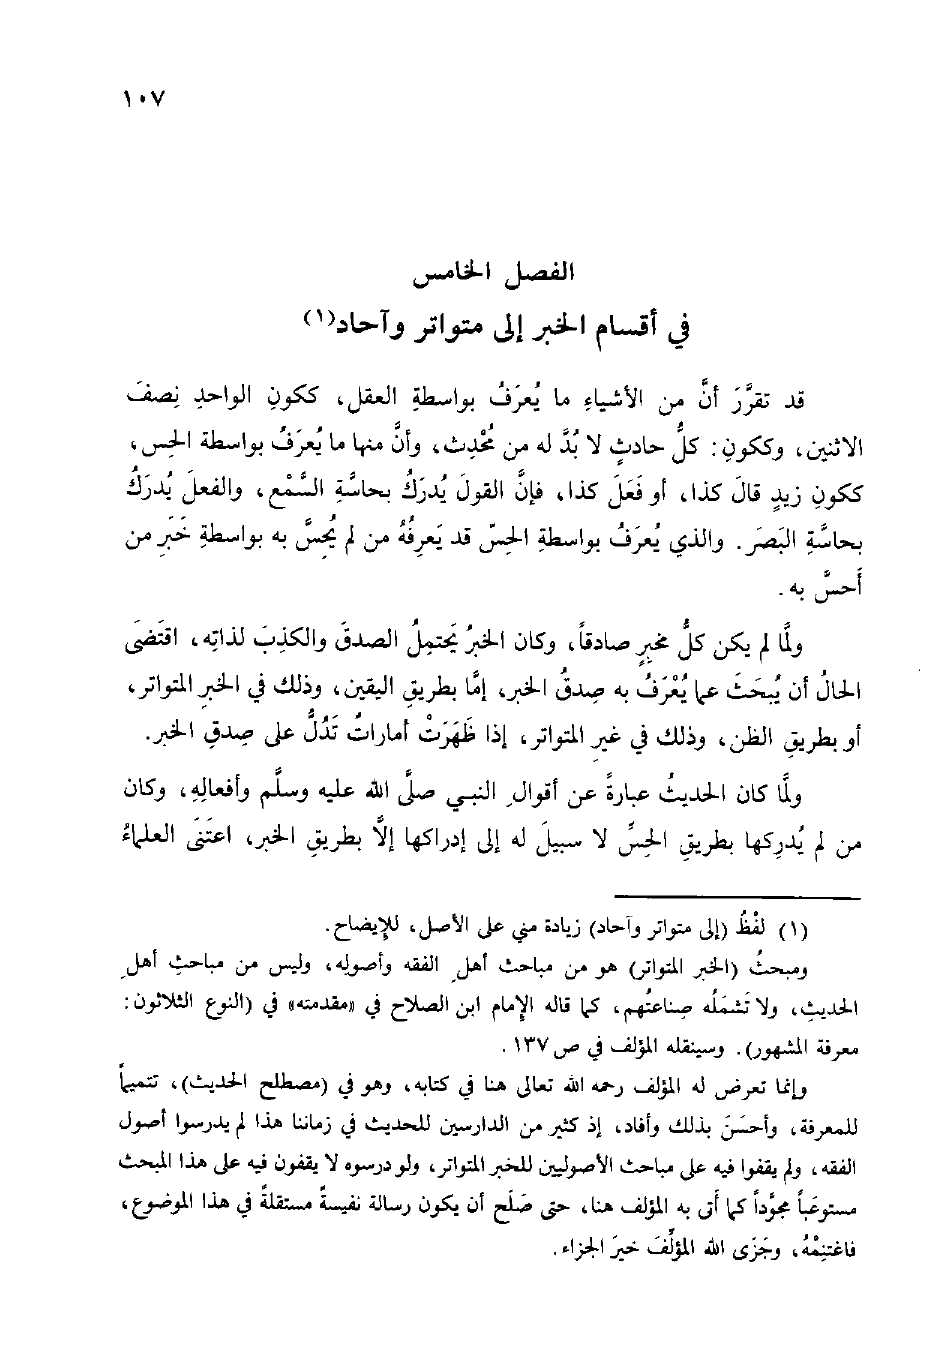 ١٠٧
الفصل الخامس
في أقسام الخبر إلى متواتر وآحاد(١)
قد تقرَّرَ أنَّ من الأشياءِ ما يُعرَفُ بواسطةِ العقل، ككونِ الواحدِ نِصفَ
الاثنين، وككونِ: كلُّ حادثٍ لا بُدَّ له من مُحْدِث، وأنَّ منها ما يُعرَفُ بواسطة الحِس،
ككونِ زيدٍ قالَ كذا، أو فَعَلَ كذا، فإنَّ القولَ يُدرَكُ بحاسَّةِ السَّمْع، والفعلَ يُدرَكُ
بحاسَّةِ البَصَر. والذي يُعرَفُ بواسطةِ الحِسّ قد يَعرِفُهُ من لم يُحِسَّ به بواسطةِ خَبَرِ من
أَحسَّ به.
ولمَّا لم يكن كلُّ مخبِرٍ صادقاً، وكان الخبرُ يَحتمِلُ الصدقَ والكذبَ لذاتِه، اقتَضَى
الحالُ أن يُبحَثَ عما يُعْرَفُ به صِدقُ الخبر، إمَّا بطريقِ اليقين، وذلك في الخبرِ المتواتر،
أو بطريقِ الظن، وذلك في غيرِ المتواتر، إذا ظَهَرَتْ أماراتٌ تَدُلُّ على صِدقِ الخبر.
ولمَّا كان الحديثُ عبارةً عن أقوالِ النبي صلَّى الله عليه وسلَّم وأفعالِهِ، وكان
من لم يُدرِكها بطريقِ الحِسِّ لا سبيلَ له إلى إدراكها إلَّا بطريقِ الخبر، اعتَنَى العلماءُ
(١) لفْظُ (إلى متواتر وآحاد) زيادة مني على الأصل، للإيضاح.
ومبحثُ (الخبر المتواتر) هو من مباحث أهلِ الفقه وأصولِه، وليس من مباحثِ أهلِ
الحديثِ، ولا تَشمَلُه صِناعتُهم، كما قاله الإمام ابن الصلاح في «مقدمته» في (النوع الثلاثون:
معرفة المشهور). وسينقله المؤلف في ص ١٣٧.
وإنما تعرض له المؤلف رحمه الله تعالى هنا في كتابه، وهو في (مصطلح الحديث)، تتميماً
للمعرفة، وأحسَنَ بذلك وأفاد، إذ كثير من الدارسين للحديث في زماننا هذا لم يدرسوا أصول
الفقه، ولم يقفوا فيه على مباحث الأصوليين للخبر المتواتر، ولو درسوه لا يقفون فيه على هذا المبحث
مستوعَباً مجوَّداً كما أَتى به المؤلف هنا، حتى صَلَح أن يكون رسالة نفيسةً مستقلةً في هذا الموضوع،
فاغتنِمْهُ، وجَزَى الله المؤلِّفَ خيرَ الجزاء.